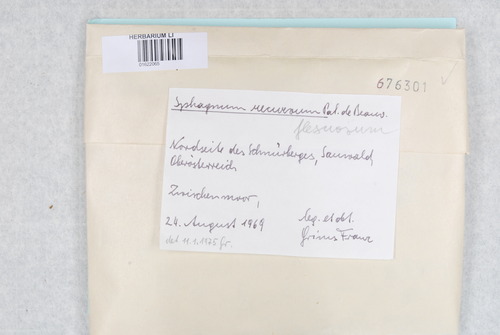 HERBARIUM LI
676301
Sphagnum recurvum Pal. de Beauv.
flexuosum
Nordseite des Schnürberges, Sauwald
Oberösterreich
Zwischenmoor,
24. August 1969 leg. et det.
det 11.1.1975 Gr. Grims Franz